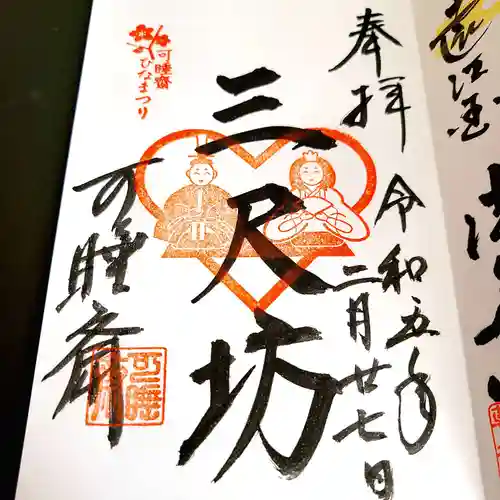 奉拝
令和五年
二月廿七日
三尺坊
可睡齋
ひなまつり
可睡斎
遠江国